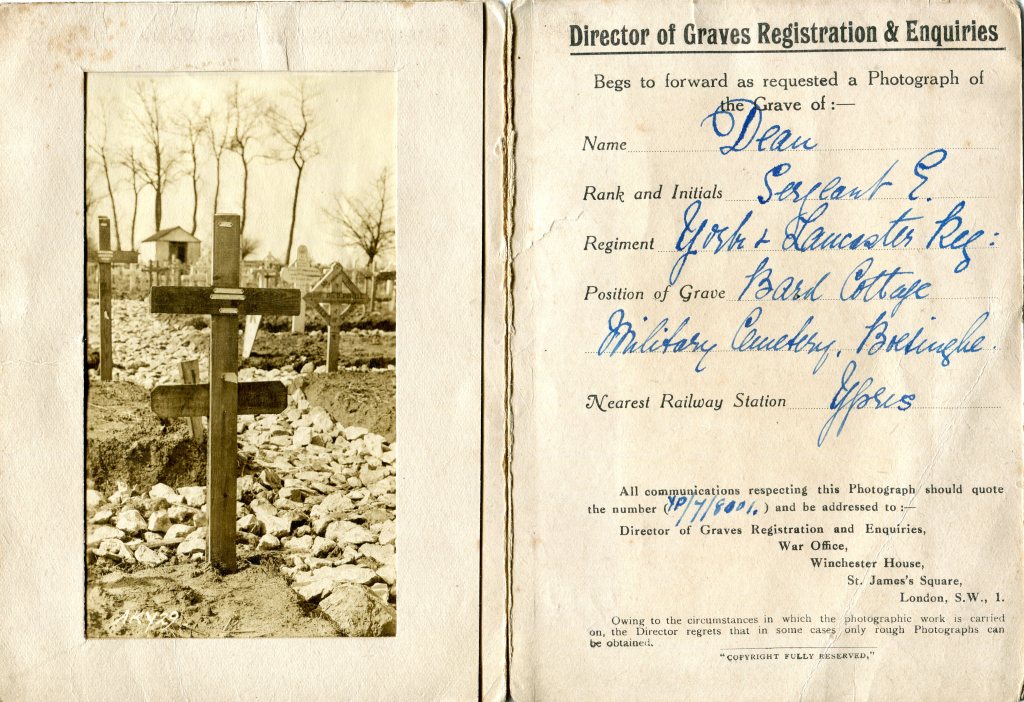 Director of Graves Registration & Enquiries
Begs to forward as requested a Photograph of
the Grave of :—
Name Dean
Rank and Initials Sergeant E.
Regiment York & Lancaster Reg:
Position of Grave Bard Cottage
Military Cemetery, Boesinghe.
Nearest Railway Station Ypres
All communications respecting this Photograph should quote
the number (YP/7/8001.) and be addressed to :—
Director of Graves Registration and Enquiries,
War Office,
Winchester House,
St. James's Square,
London, S.W., 1.
Owing to the circumstances in which the photographic work is carried
on, the Director regrets that in some cases only rough Photographs can
be obtained.
"COPYRIGHT FULLY RESERVED,"